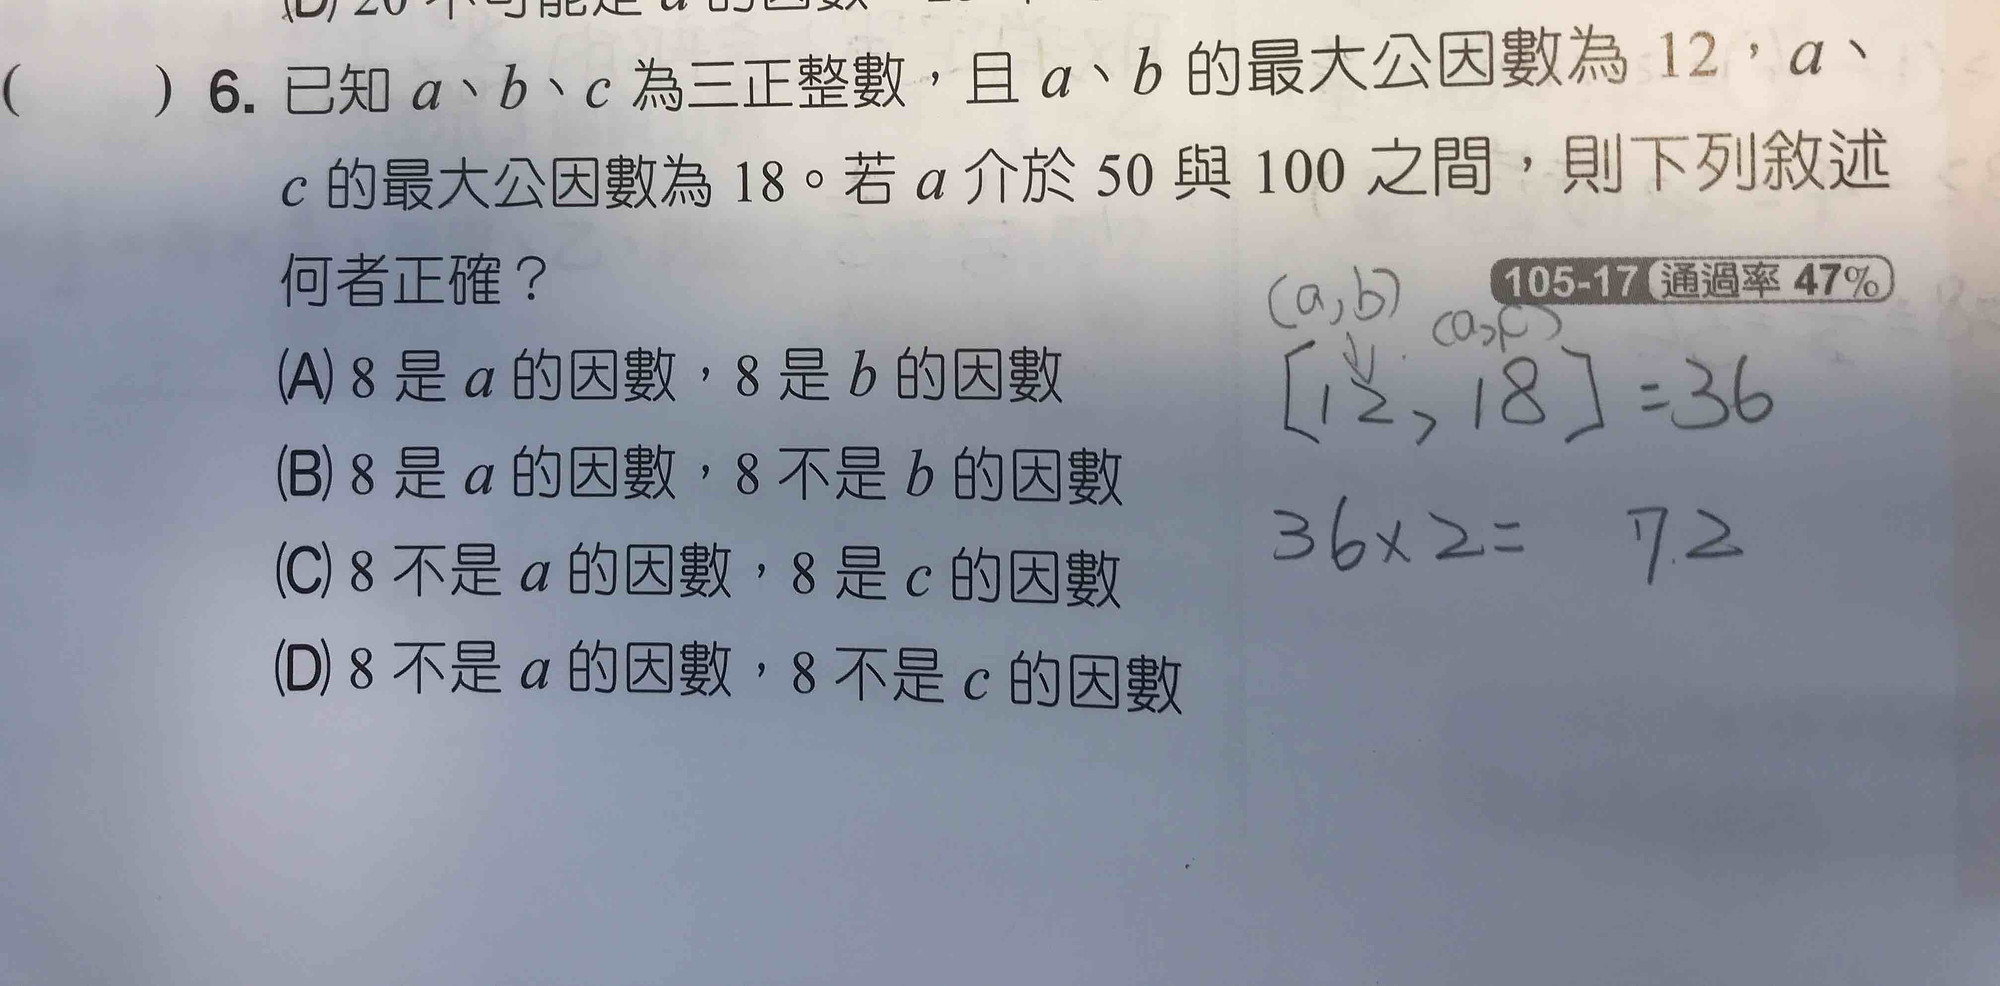 (D) 20 不可能是 a 的因數
(　) 6. 已知 a、b、c 為三正整數，且 a、b 的最大公因數為 12，a、
c 的最大公因數為 18。若 a 介於 50 與 100 之間，則下列敘述
何者正確？
105-17 通過率 47%
(A) 8 是 a 的因數，8 是 b 的因數
(B) 8 是 a 的因數，8 不是 b 的因數
(C) 8 不是 a 的因數，8 是 c 的因數
(D) 8 不是 a 的因數，8 不是 c 的因數
(a,b) (a,c)
[12, 18] = 36
36×2= 72